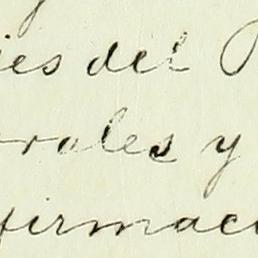 ies del
rales y
firmaci